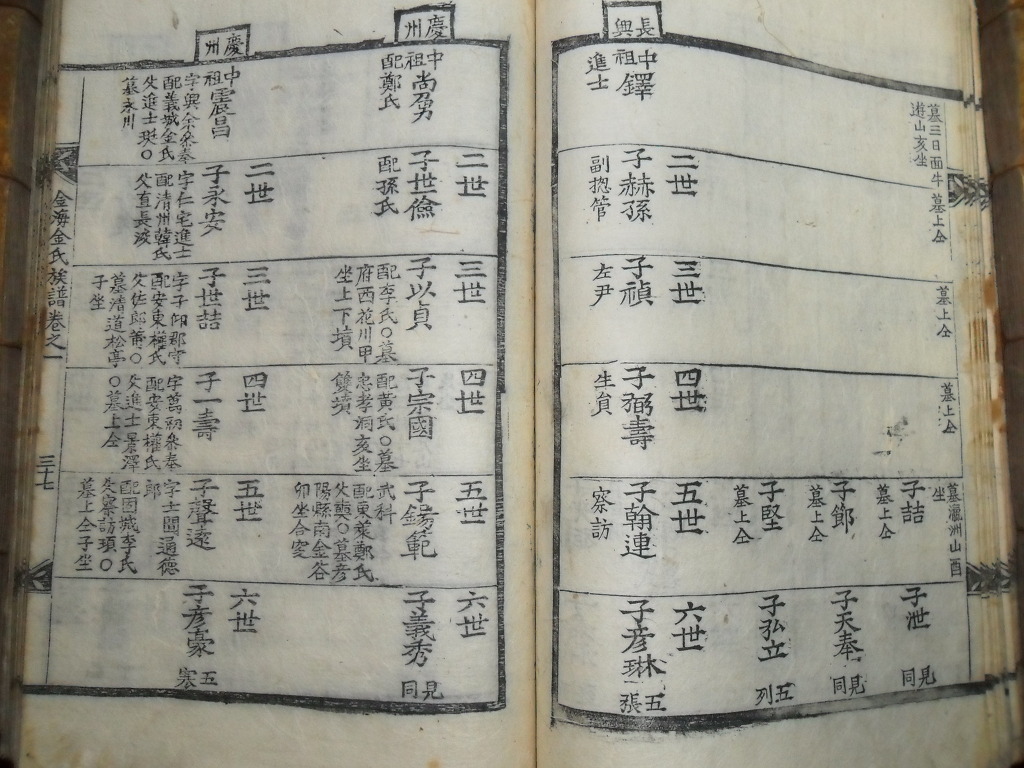 墓三日面牛
遊山亥坐
墓上仝
墓上仝
墓上仝
墓瀛洲山酉
坐
子詰
墓上仝
子節
墓上仝
子堅
墓上仝
子泄
見同
子天奉
見同
子弘立
五列
長興
中祖鐸
進士
二世
子赫孫
副摠管
三世
子禎
左尹
四世
子弼壽
生負
五世
子翰連
察訪
六世
子彦琳
五張
慶州
中祖尚勇
配鄭氏
二世
子世儉
配孫氏
三世
子以貞
配李氏〇墓
府西花川甲
坐上下墳
四世
子宗國
配黃氏〇墓
忠孝洞亥坐
雙墳
五世
子錫範
武科
配東萊鄭氏
父〇墓彦
陽縣南金谷
卯坐合窆
六世
子義秀
見同
慶州
中祖震昌
字興余參奉
配義城金氏
父進士珽〇
墓永川
二世
子永安
字仁宅進士
配清州韓氏
父直長浚
三世
子世喆
字子卬郡守
配安東權氏
父佐郎〇
墓清道松亭
子坐
四世
子一壽
字萬初參奉
配安東權氏
父進士景澤
〇墓上仝
五世
子聲遠
字士聞通德
郎
配固城李氏
父察訪頊〇
墓上仝子坐
六世
子彦豪
五
金海金氏族譜卷之一
三十七